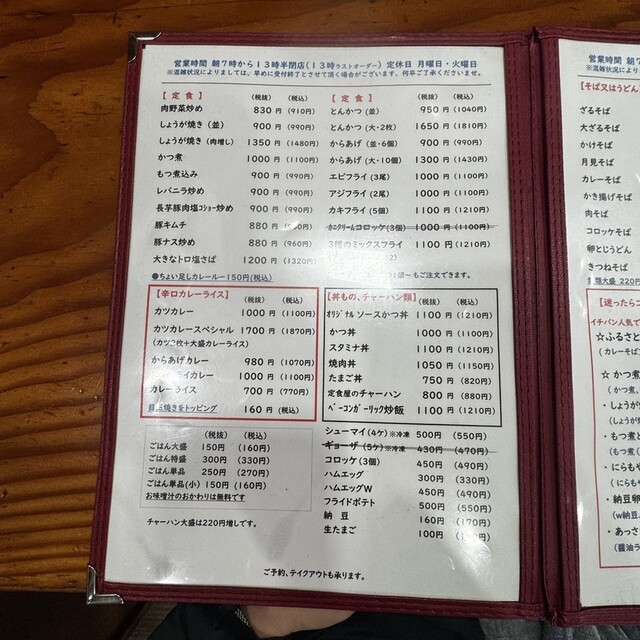 営業時間 朝7時から13時半閉店(13時ラストオーダー) 定休日 月曜日・火曜日
※混雑状況によりましては、早めに受付終了とさせて頂く場合がございます、何卒ご了承くださいませ。
【定食】 (税抜) (税込)
肉野菜炒め 830円 (910円)
しょうが焼き (並) 900円 (990円)
しょうが焼き (肉増し) 1350円 (1480円)
かつ煮 1000円 (1100円)
もつ煮込み 900円 (990円)
レバニラ炒め 900円 (990円)
長芋豚肉塩コショー炒め 900円 (990円)
豚キムチ 880円
豚ナス炒め 880円 (960円)
大きなトロ塩さば 1200円 (1320円)
●ちょい足しカレールー150円(税込)
【定食】 (税抜) (税込)
とんかつ (並) 950円 (1040円)
とんかつ (大・2枚) 1650円 (1810円)
からあげ (並・6個) 900円 (990円)
からあげ (大・10個) 1300円 (1430円)
エビフライ (3尾) 1000円 (1100円)
アジフライ (2尾) 1000円 (1100円)
カキフライ (5個) 1100円 (1210円)
カニクリームコロッケ(3個) 1000円 (1100円)
3種のミックスフライ 1100円 (1210円)
個〜もご注文できます。
【辛口カレーライス】 (税抜) (税込)
カツカレー 1000円 (1100円)
カツカレースペシャル 1700円 (1870円)
(カツ2枚+大盛カレーライス)
からあげカレー 980円 (1070円)
イカレー 1000円 (1100円)
カレーライス 700円 (770円)
目玉焼きをトッピング 160円 (税込)
【丼もの、チャーハン類】 (税抜) (税込)
オリジナル ソースかつ丼 1100円 (1210円)
かつ丼 1000円 (1100円)
スタミナ丼 1100円 (1210円)
焼肉丼 1050円 (1150円)
たまご丼 750円 (820円)
定食屋のチャーハン 800円 (880円)
ベーコンガーリック炒飯 1100円 (1210円)
(税抜) (税込)
ごはん大盛 150円 (160円)
ごはん特盛 300円 (330円)
ごはん単品 250円 (270円)
ごはん単品(小) 150円 (160円)
お味噌汁のおかわりは無料です
チャーハン大盛は220円増しです。
シューマイ(4ケ)※冷凍 500円 (550円)
ギョーザ (5ケ)※冷凍 430円 (470円)
コロッケ (3個) 450円 (490円)
ハムエッグ 300円 (330円)
ハムエッグW 450円 (490円)
フライドポテト 500円 (550円)
納豆 160円 (170円)
生たまご 100円
ご予約、テイクアウトも承ります。
営業時間 朝7
※混雑状況により
【そば又はうどん】
ざるそば
大ざるそば
かけそば
月見そば
カレーそば
かき揚げそば
肉そば
コロッケそば
卵とじうどん
きつねそば
大盛 220円
【迷ったらコ
イチバン人気で
☆ふるさと
(カレーそば
☆かつ煮
(かつ煮、
・しょうが
(しょうが
・もつ煮
(もつ煮
・にらも
(にらもや
・納豆卵
(w納豆、
・あっさ
(醤油ラ